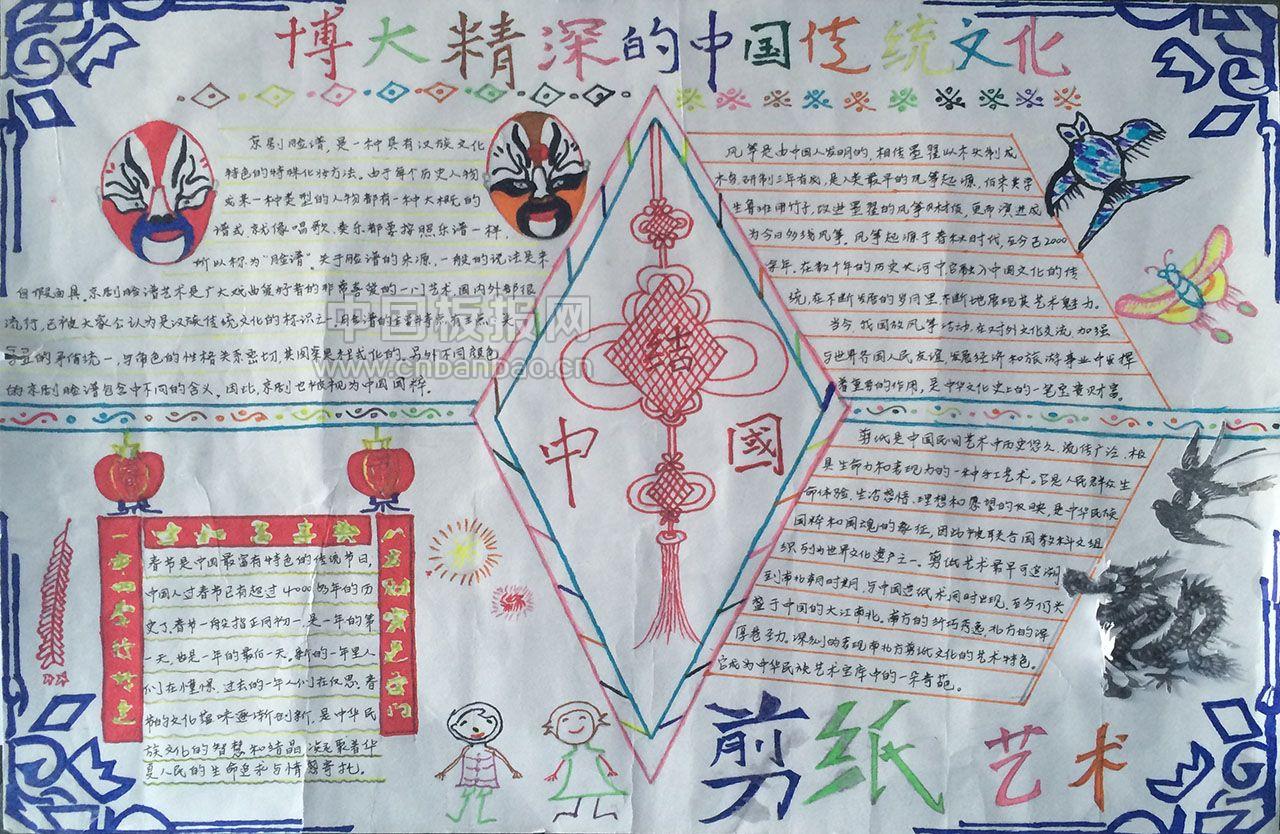 博大精深的中国传统文化
京剧脸谱,是一种具有汉族文化
特色的特殊化妆方法。由于每个历史人物
或某一种类型的人物都有一种大概的
谱式,就像唱歌、奏乐都要按照乐谱一样,
所以称为“脸谱”。关于脸谱的来源,一般的说法是来
自假面具。京剧脸谱艺术是广大戏曲爱好者的非常喜爱的一门艺术,国内外都很
流行,已被大家公认为是汉族传统文化的标识之一
的矛盾统一,与角色的性格关系密切,其图案是程式化的。另外不同颜色
的京剧脸谱包含中不同的含义。因此,京剧也被视为中国国粹。
风筝是由中国人发明的,相传墨翟以木头制成
木鸟,研制三年有成,是人类最早的风筝起源。后来鲁
班用竹子,改进墨翟的风筝材质,更而演进成
为今日多线风筝。风筝起源于春秋时代,至今已2000
余年。在数千年的历史大河中已融入中国文化的传
统,在不断发展的岁月里,不断地展现其艺术魅力。
当今,我国放风筝活动,在对外文化交流,加强
与世界各国人民友谊,发展经济和旅游事业中发挥
着重要的作用,是中华文化史上的一笔宝贵财富。
中国板报网
www.cnbanbao.cn
结
中 國
剪纸是中国民间艺术中历史悠久、流传广泛、极
具生命力和表现力的一种手工艺术。它是人民群众生
命体验、生活感悟、理想和愿望的反映,是中华民族
国粹和国魂的象征,因此中被联合国教科文组
织列为世界文化遗产之一。剪纸艺术最早可追溯
到南北朝时期,与中国造纸术同时出现,至今仍长
盛于中国的大江南北。南方的纤巧秀逸,北方的浑
厚苍劲。深刻的表现南北方剪纸文化的艺术特色。
它成为中华民族艺术宝库中的一朵奇葩。
春节是中国最富有特色的传统节日,
中国人过春节已有超过4000多年的历
史了,春节一般指正月初一,是一年的第
一天,也是一年的最后一天。新的一年里人
们在憧憬,过去的一年人们在仅思。春
节的文化韵味逐渐创新,是中华民
族文化的智慧和结晶,凝聚着华
夏人民的生命追求与情感寄托。
剪纸艺术